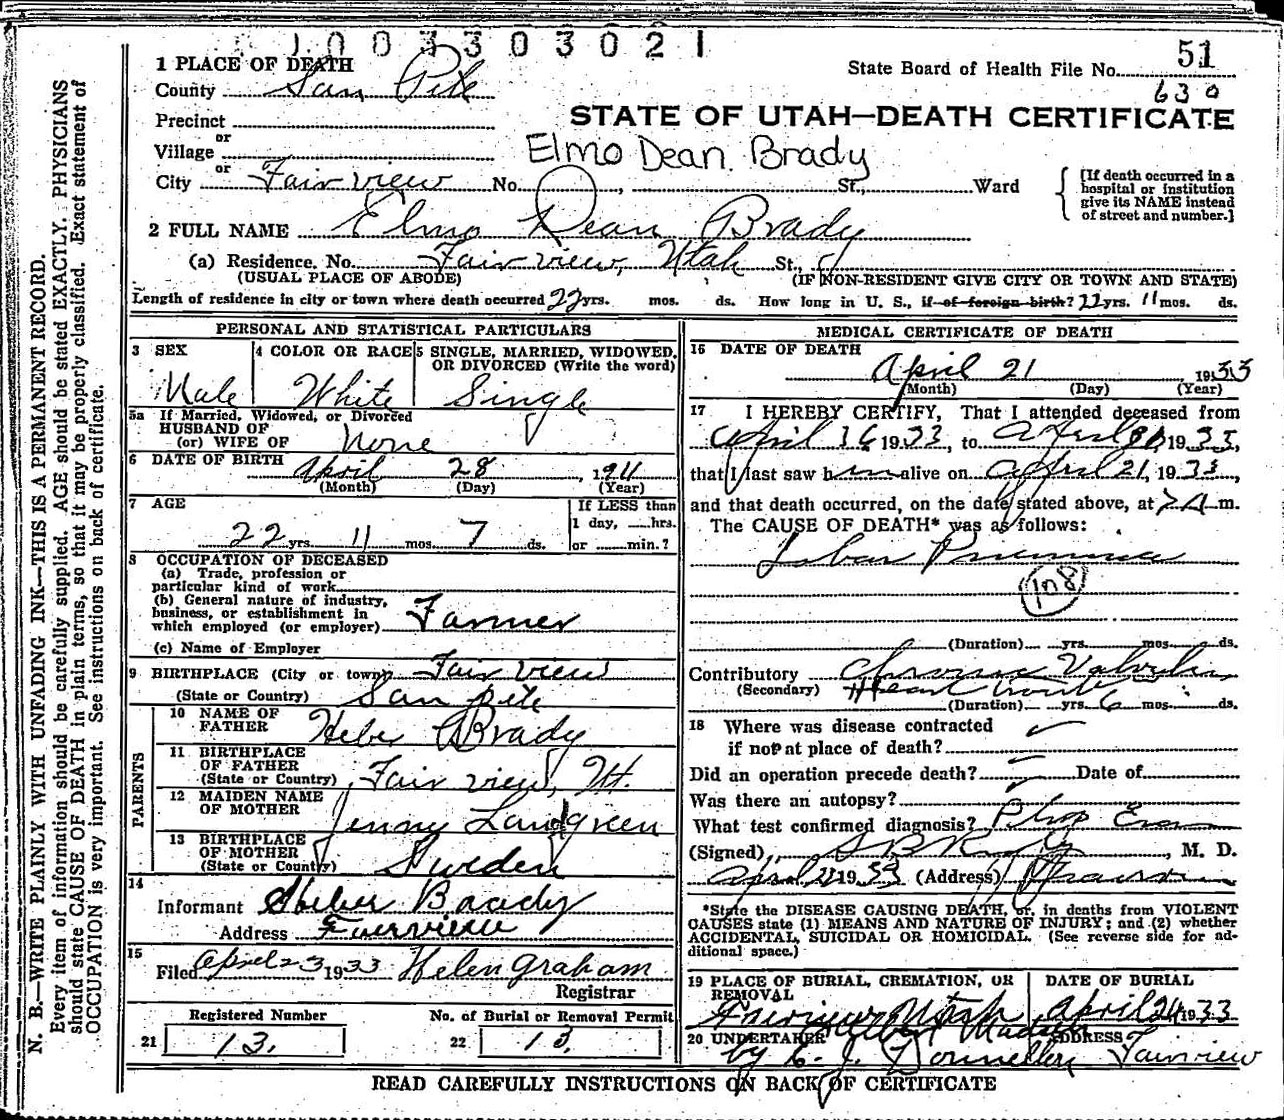 1003303021
51
State Board of Health File No.
630
1 PLACE OF DEATH
County San Pete
Precinct
or
Village
or
City Fairview No. , St., Ward
STATE OF UTAH—DEATH CERTIFICATE
Elmo Dean Brady
[If death occurred in a
hospital or institution
give its NAME instead
of street and number.]
2 FULL NAME Elmo Dean Brady
(a) Residence, No. Fairview, Utah St.,
(USUAL PLACE OF ABODE) (IF NON-RESIDENT GIVE CITY OR TOWN AND STATE)
Length of residence in city or town where death occurred 22 yrs. mos. ds. How long in U. S., if of foreign birth? 22 yrs. 11 mos. ds.
PERSONAL AND STATISTICAL PARTICULARS
3 SEX
Male
4 COLOR OR RACE
White
5 SINGLE, MARRIED, WIDOWED,
OR DIVORCED (Write the word)
Single
5a If Married, Widowed, or Divorced
HUSBAND OF
(or) WIFE OF None
6 DATE OF BIRTH April 28, 19
(Month) (Day) (Year)
7 AGE
22 yrs. 11 mos. 7 ds.
If LESS than
1 day, hrs.
or min.?
8 OCCUPATION OF DECEASED
(a) Trade, profession or
particular kind of work
(b) General nature of industry,
business, or establishment in
which employed (or employer) Farmer
(c) Name of Employer
9 BIRTHPLACE (City or town) Fairview
(State or Country) San pete
PARENTS
10 NAME OF
FATHER Heber Brady
11 BIRTHPLACE
OF FATHER
(State or Country) Fairview, Ut.
12 MAIDEN NAME
OF MOTHER Jenny Landgreen
13 BIRTHPLACE
OF MOTHER
(State or Country) Sweden
14
Informant Heber Brady
Address Fairview
15
Filed April 23 1933 Helen Graham
Registrar
Registered Number
21 13.
No. of Burial or Removal Permit
22 13.
MEDICAL CERTIFICATE OF DEATH
16 DATE OF DEATH
April 21 1933
(Month) (Day) (Year)
17 I HEREBY CERTIFY, That I attended deceased from
April 16 1933, to April 1933,
that I last saw him alive on April 21, 1933,
and that death occurred, on the date stated above, at 7 A m.
The CAUSE OF DEATH* was as follows:
Lobar Pneumonia
108
(Duration) yrs. mos. ds.
Contributory Chronic Valvular
(Secondary) Heart trouble
(Duration) yrs. 6 mos. ds.
18 Where was disease contracted
if not at place of death?
Did an operation precede death? Date of
Was there an autopsy?
What test confirmed diagnosis? Phys Exam
(Signed), , M. D.
April 1933 (Address)
*State the DISEASE CAUSING DEATH, or, in deaths from VIOLENT
CAUSES state (1) MEANS AND NATURE OF INJURY; and (2) whether
ACCIDENTAL, SUICIDAL OR HOMICIDAL. (See reverse side for ad-
ditional space.)
19 PLACE OF BURIAL, CREMATION, OR
REMOVAL
Fairview Utah
DATE OF BURIAL
April 24 1933
20 UNDERTAKER
ADDRESS
by C. J. Fairview
READ CAREFULLY INSTRUCTIONS ON BACK OF CERTIFICATE
N. B.—WRITE PLAINLY WITH UNFADING INK—THIS IS A PERMANENT RECORD.
Every item of information should be carefully supplied. AGE should be stated EXACTLY. PHYSICIANS
should state CAUSE OF DEATH in plain terms, so that it may be properly classified. Exact statement of
OCCUPATION is very important. See instructions on back of certificate.